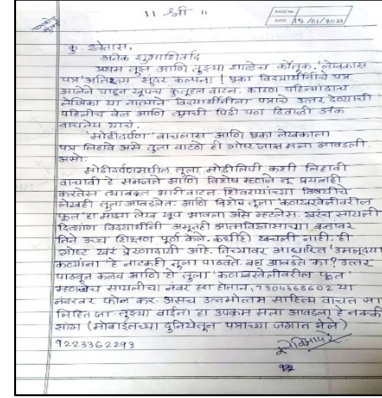 ।। श्री ।।
DATE 15/01/2022
कु. श्वेतास,
अनेक शुभाशिर्वाद
प्रथम तुझ आणि तुझ्या शाळेच कौतुक. 'लेखकास
पत्र' अतिशय सुंदर कल्पना! एका विद्यार्थीनीचे पत्र
आलेले पाहून खूपच कुतूहल वाटल. कारण पहिल्यांदाच
लेखिका या नात्याने विद्यार्थीनीला पत्राचे उत्तर देण्याची
पहिलीच वेळ आणि तुमची पिढी पण दिवाळी अंक
वाचतेय याचे.
'मोडीदर्पण' वाचलास आणि एका लेखकाला
पत्र लिहावे असे तुला वाटले ही गोष्टच मला आवडली.
असो.
मोडीदर्पणमधील तुला मोडीलिपी कशी लिहावी
वाचावी हे समजले आणि विशेष म्हणजे तू प्रयत्नही
करतेस त्याबद्दल भारी वाटल. शिवरायांच्या विषयीचे
लेखही तुला आवडलेत. आणि विशेष तुला 'काट्यावेलीवरील
फूल' हा माझा लेख खूप भावला असे म्हटलेस. खरंच सायली
दिव्यांग विद्यार्थीनी असूनही आत्मविश्वासाच्या बळावर
तिने उच्च शिक्षण पूर्ण केले. कधीही खचली नाही. ही
गोष्ट खरंच प्रेरणादायी आहे. तिच्यावर आधारित 'उमलूद्या
कळ्यांना' हे नाटकही तुला पाठवते. बघ आवडते का? उत्तर
पाठवून कळव आणि हो तुला 'काट्यावेलीवरील फूल'
म्हणजेच सायलीचा नंबर हवा होता ना, 9304368602 या
नंबरवर फोन कर. असंच उत्तमोत्तम साहित्य वाचत जा
लिहित जा. तुझ्या बाईंना हा उपक्रम मला आवडला हे नक्की
सांग (मोबाईलच्या दुनियेतून पत्राच्या जगात नेले)
9223362293